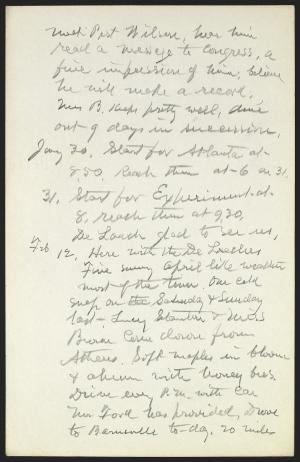 meet Pest Wilson, hear him
read a message to Congress, a
fine impression of him, believe
he will make a record.
Mrs B. keeps pretty well, dine
out 9 days in succession,
Jany 30. Start for Atlanta at
8.50. Reach there at 6 on 31.
31, Start for Experiment at
8, reach there at 9,30,
De Loach glad to see us,
Feb 12, Here with the De Loaches
Fine sunny April like weather
most of the time. One cold
snap on the Saturday & Sunday
last. Lucy Stanton & Miss
Brown Come down from
Athens. Soft maples in bloom
& a hum with honey bees.
Drive every P.M. with Car
Mr Ford has provided, Drove
to Barnesville to-day. 20 miles